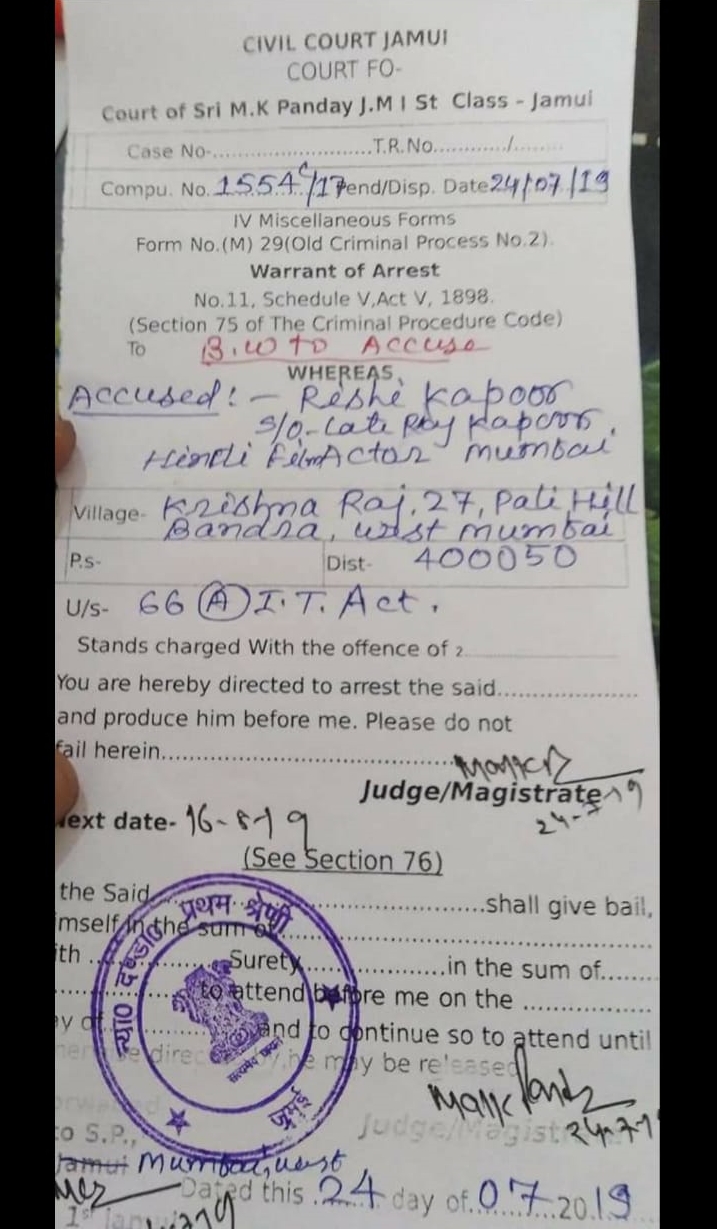 CIVIL COURT JAMUI
COURT FO-
Court of Sri M.K Panday J.M I St Class - Jamui
Case No-.............................T.R.No............/........
Compu. No. 1554 C/17 Pend/Disp. Date 24/07/19
IV Miscellaneous Forms
Form No.(M) 29(Old Criminal Process No.2).
Warrant of Arrest
No.11, Schedule V,Act V, 1898.
(Section 75 of The Criminal Procedure Code)
To B.W to Accuse
WHEREAS,
Accused:- Reshi Kapoor
S/o-Late Raj Kapoor,
Hindi Film Actor Mumbai
Village- Krishna Raj.27, Pali Hill
Bandra, west mumbai
P.s- Dist- 400050
U/s- 66 (A) I.T. Act.
Stands charged With the offence of 2..........................
You are hereby directed to arrest the said.....................
and produce him before me. Please do not
fail herein.............................................
Judge/Magistrate
24-7-19
Next date- 16-8-19
(See Section 76)
the Said..............................................shall give bail,
imself in the sum of..................................................
ith ....................Surety....................in the sum of.......
....................to attend before me on the ..................
y of..................and to continue so to attend until
direc he may be released
न्या० दण्डा० प्रथम श्रेणी
सत्यमेव जयते
जमुई
Judge/Magist
24-7-19
to S.P.,
Jamui Mumbai, west
Dated this 24 day of 07 2019
1st